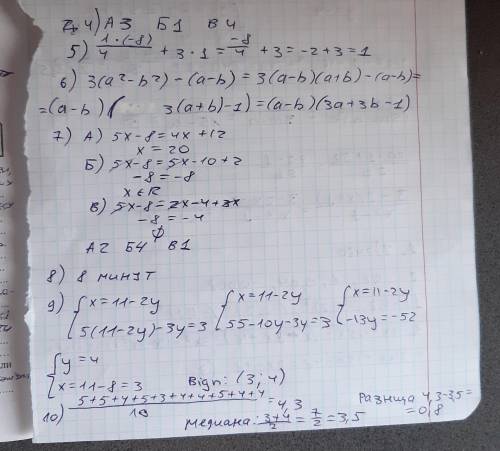 4) А3 Б1 В4
5) 1·(-8)/4 + 3·1 = -8/4 + 3 = -2+3 = 1
6) 3(a²-b²)-(a-b) = 3(a-b)(a+b)-(a-b) =
=(a-b)( 3(a+b)-1) = (a-b)(3a+3b-1)
7) А) 5x-8 = 4x+12
x = 20
Б) 5x-8 = 5x-10+2
-8 = -8
x ∈ R
В) 5x-8 = 2x-4+3x
-8 = -4
∅
А2 Б4 В1
8) 8 минут
9) { x = 11-2y { x = 11-2y { x = 11-2y
5(11-2y)-3y = 3 55-10y-3y = 3 -13y = -52
{ y = 4
x = 11-8 = 3 Bign: (3; 4)
10) 5+5+4+5+3+4+4+5+4+4/10 = 4,3 Разница 4,3-3,5 =
= 0,8
медиана: 3+4/2 = 7/2 = 3,5